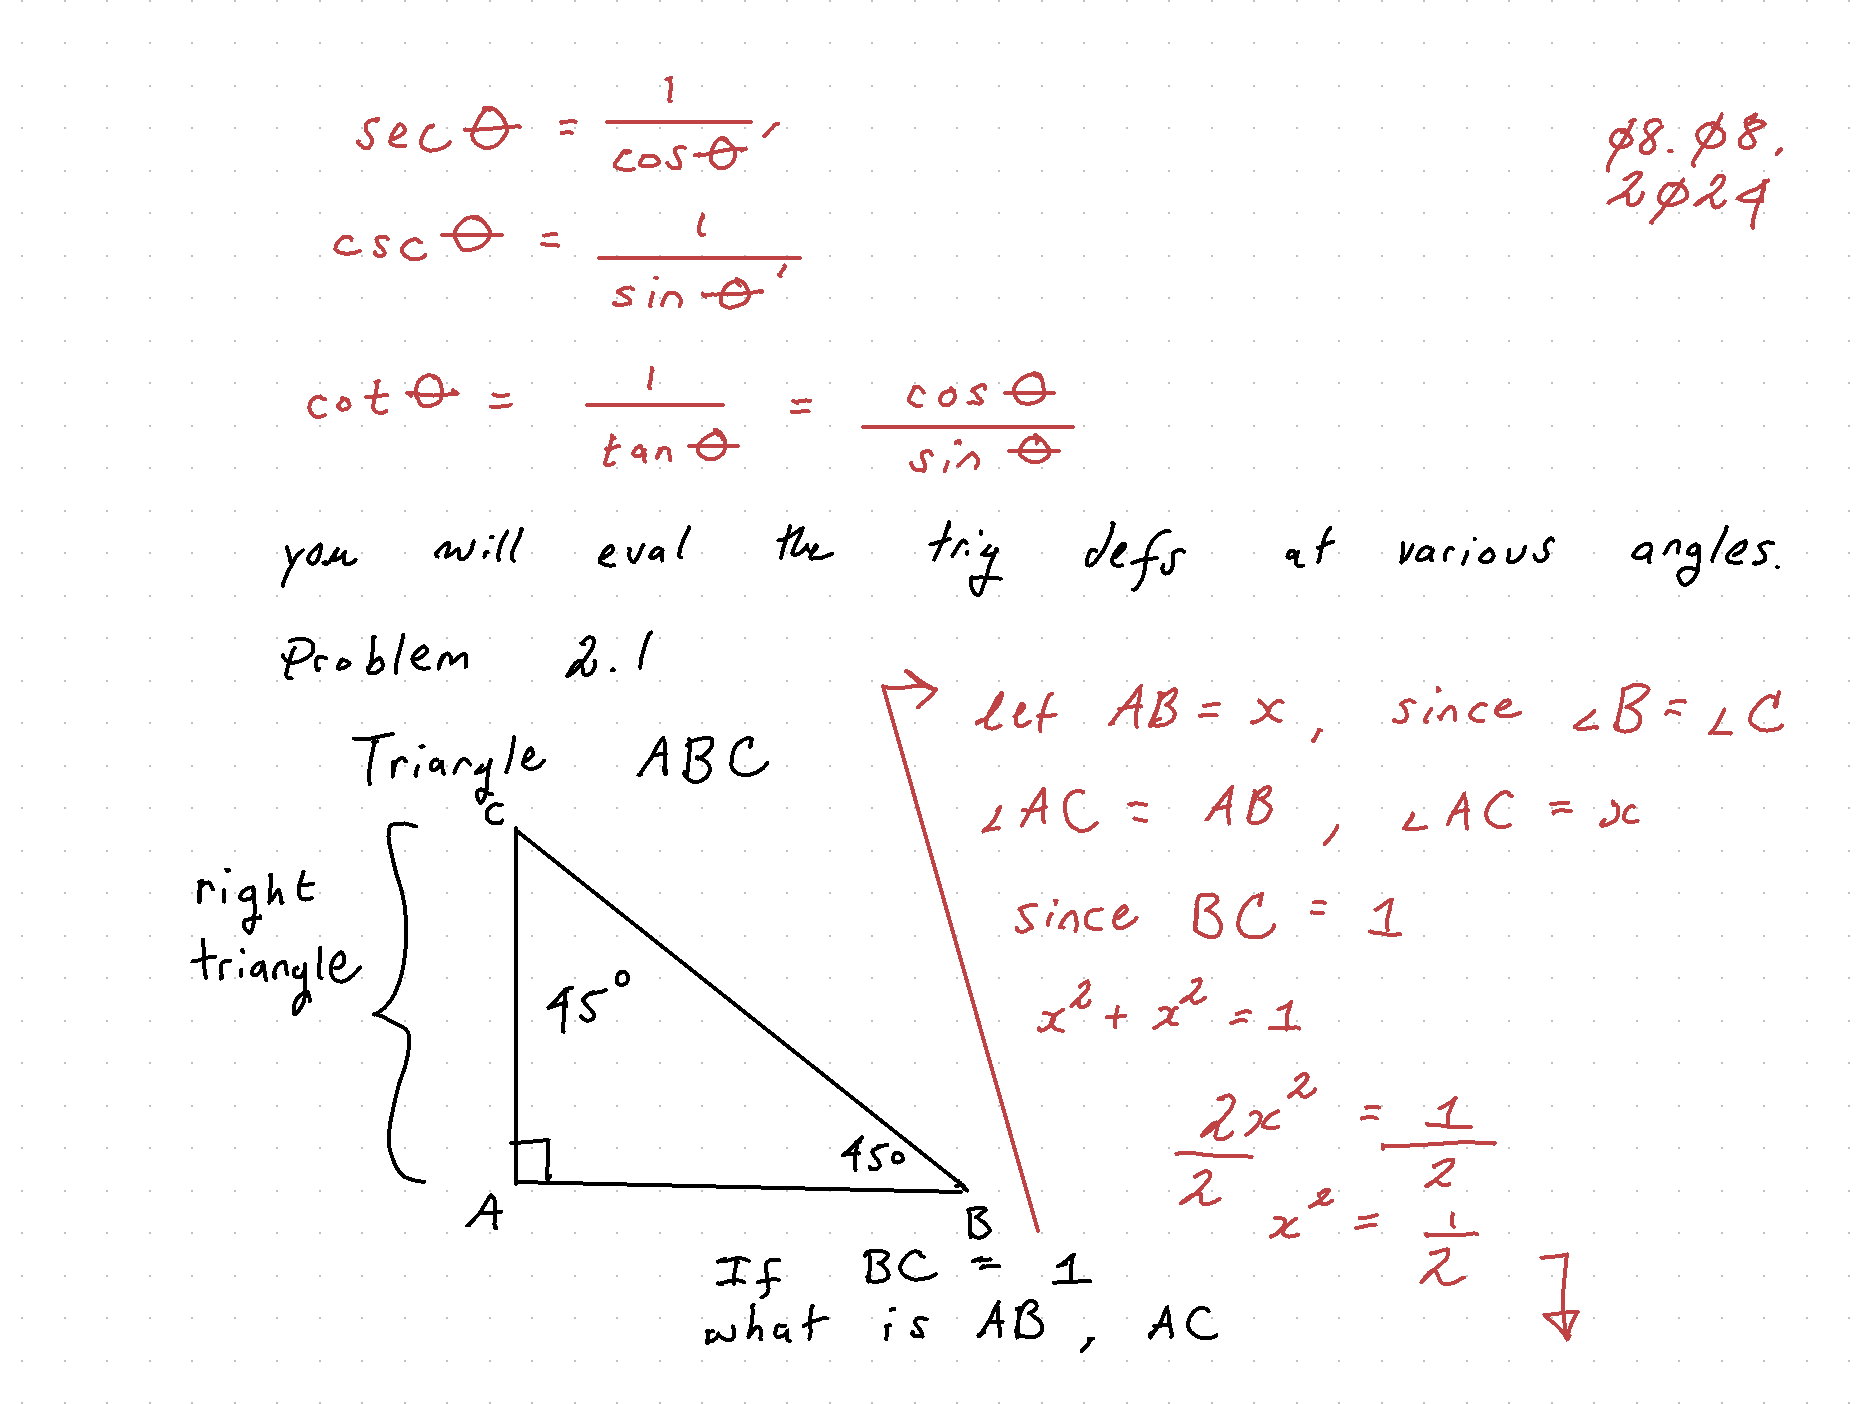 sec θ = 1/cos θ,
ø8. ø8.
2ø24
csc θ = 1/sin θ,
cot θ = 1/tan θ = cos θ/sin θ
you will eval the trig defs at various angles.
Problem 2.1
Triangle ABC
C
right
triangle
45°
45°
A
B
If BC = 1
what is AB, AC
let AB = x, since ∠B = ∠C
∠AC = AB, ∠AC = x
since BC = 1
x² + x² = 1
2x²/2 = 1/2
x² = 1/2